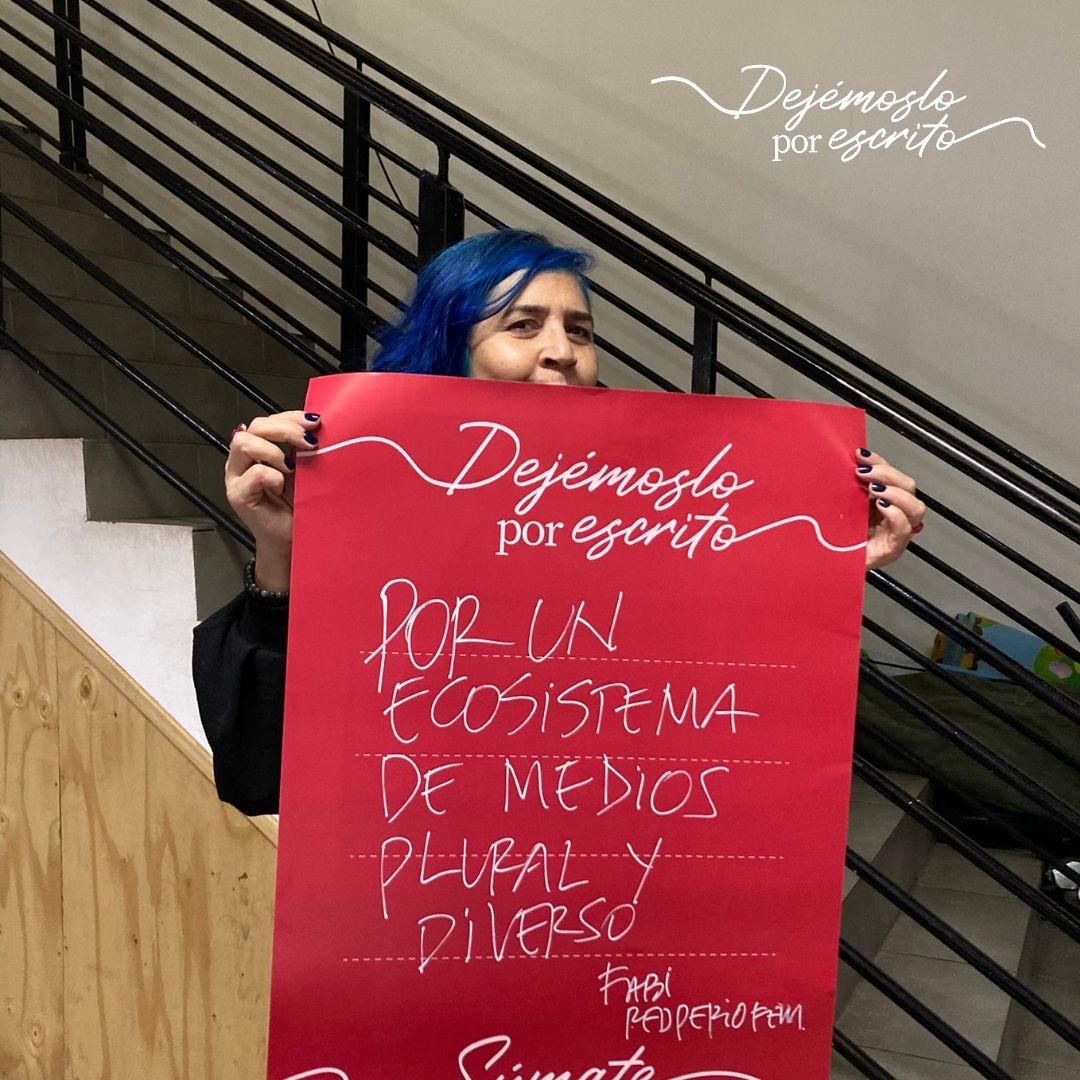 Dejémoslo
por escrito
Dejémoslo
por escrito
POR UN
ECOSISTEMA
DE MEDIOS
PLURAL Y
DIVERSO
FABI
REDPERIOFEM.
Súmate